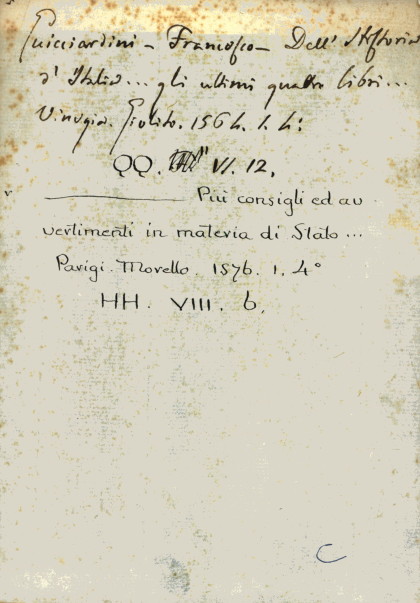 Guicciardini - Francesco - Dell' Istoria
d' Italia... gli ultimi quattro libri...
Vinegia. Giolito. 1564. 1. 4:
QQ. VI. 12.
Più consigli ed av
vertimenti in materia di Stato...
Parigi. Morello. 1576. 1. 4°
HH. VIII. 6.
C